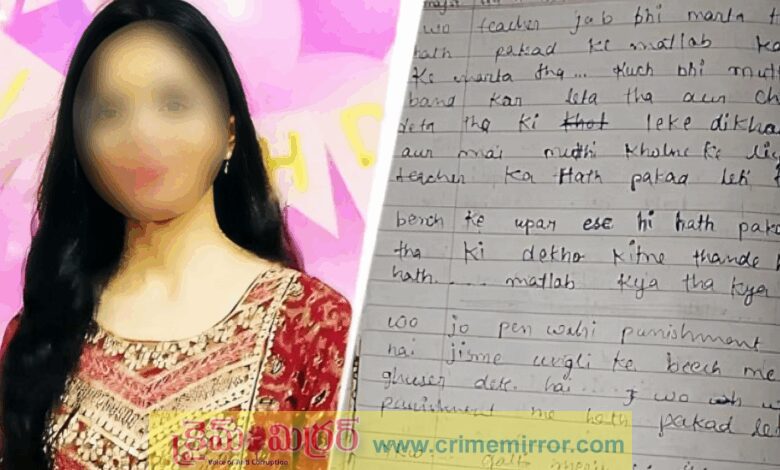 wo teacher jab bhi marta
hath pakad ke matlab
ke marta tha... Kuch bhi
band kar leta tha aur
deta tha ki leke
aur mai muthi kholne ke
teacher ka Hath pakad leti
bench ke upar ese hi hath
tha ki dekho kitne thande
hath..... matlab kya tha kya
woo jo pen wahi punishment
hai jisme ungli ke beech me
ghuser dete hai... wo
punishment me hath pakad
క్రైమ్ మిర్రర్ www.crimemirror.com
Voice of Anti Corruption